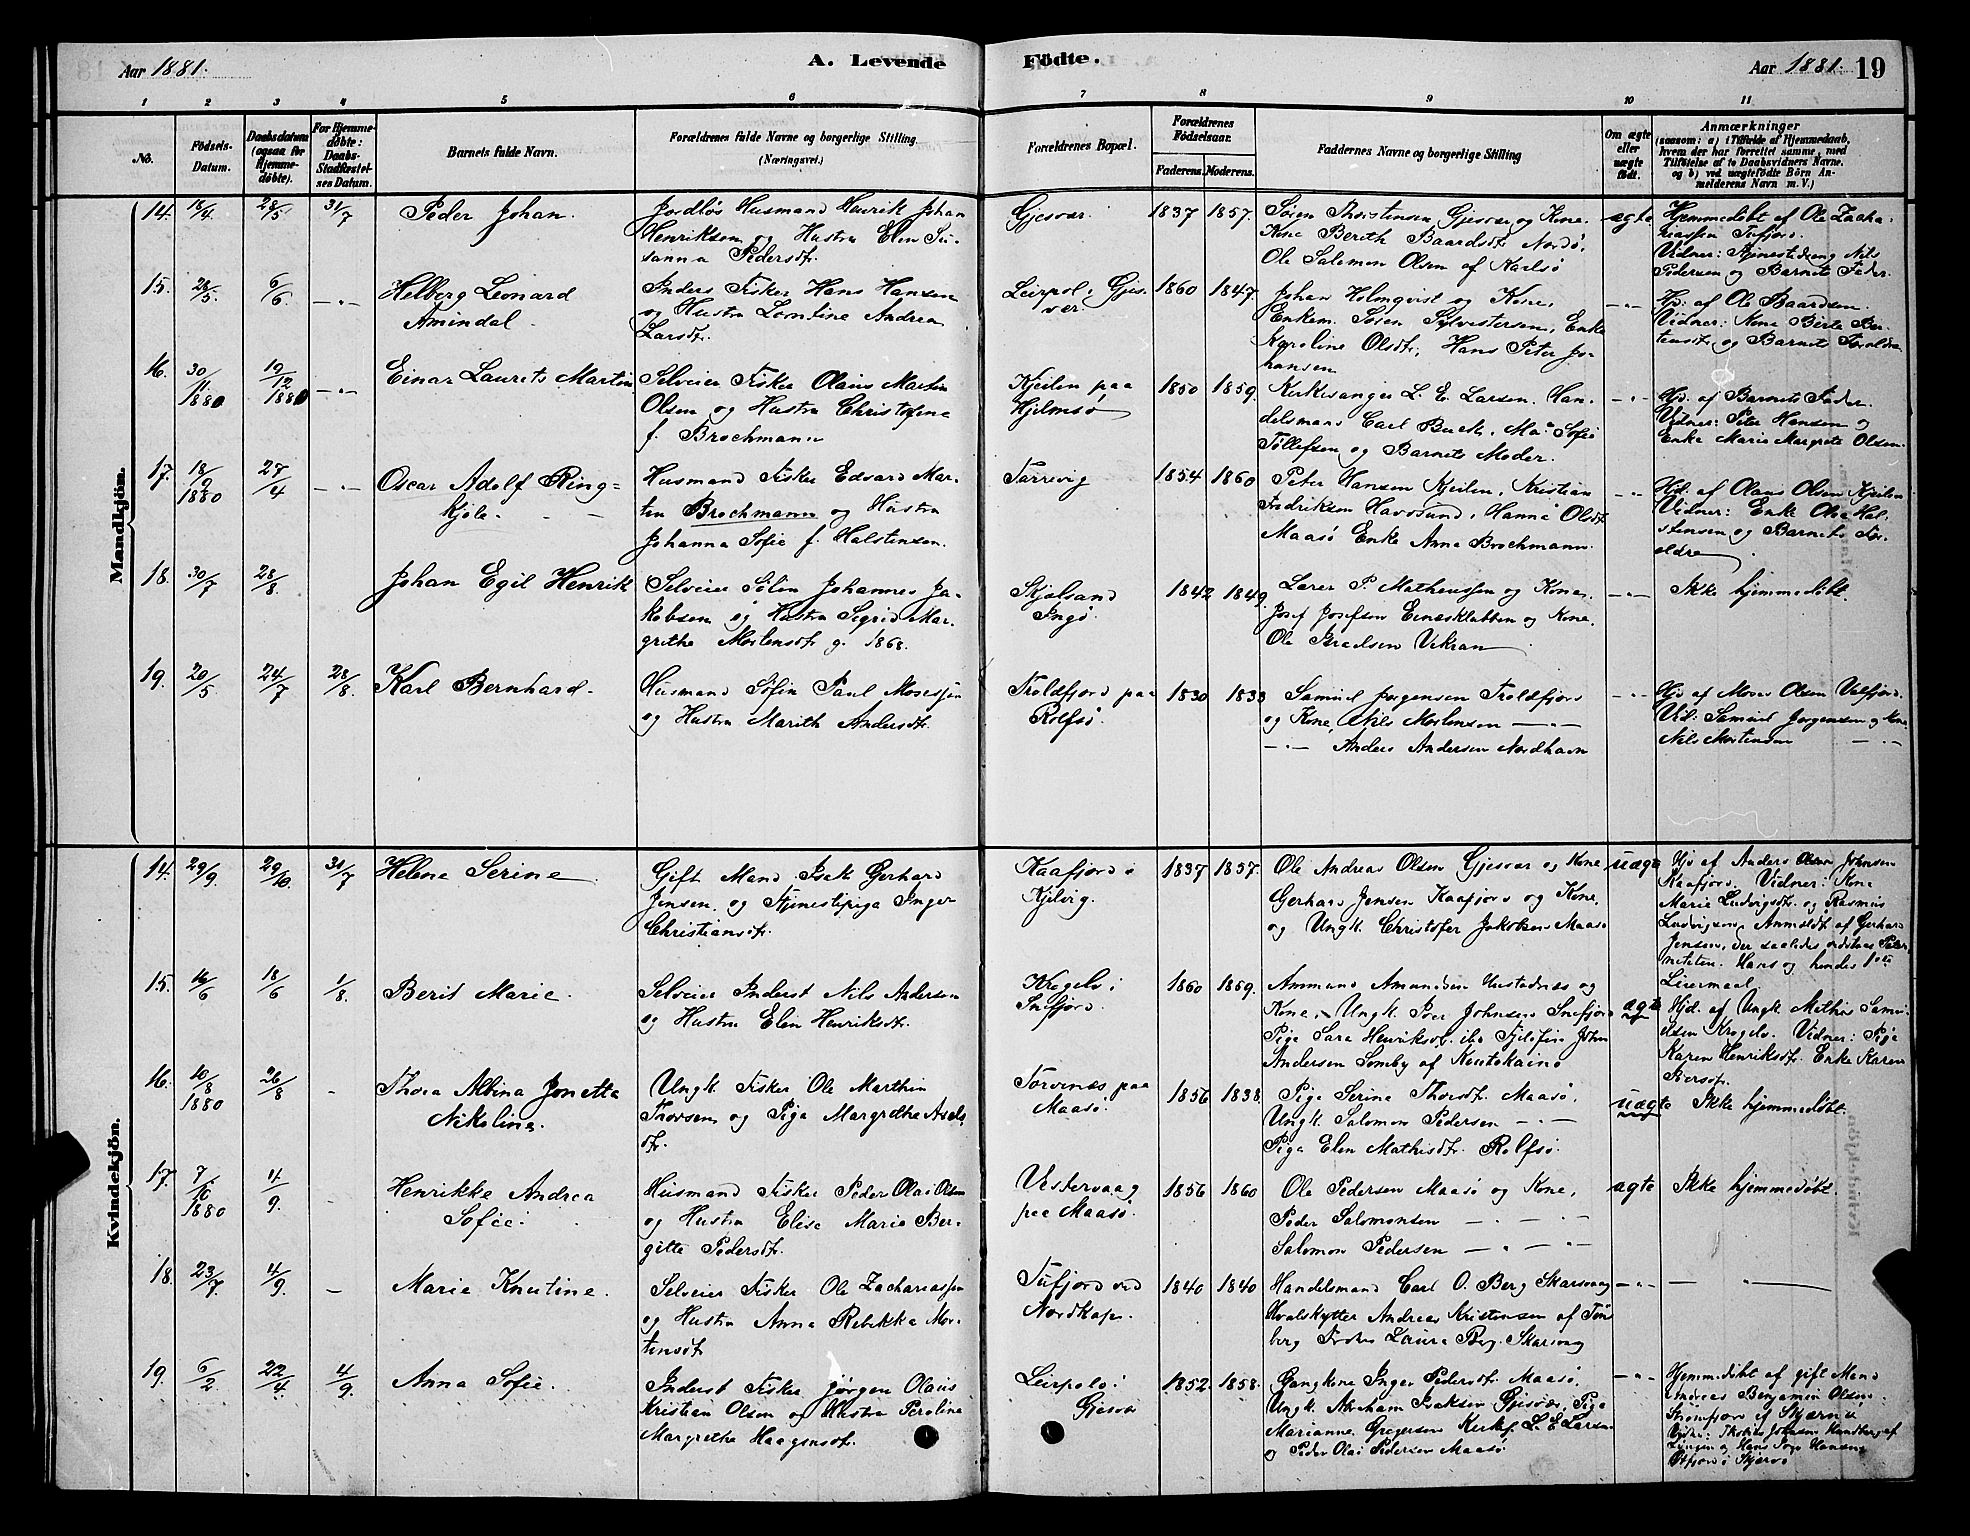 Aar 1881.
A. Levende
Födte.
Aar 1881. 19
1 2 3 4 5 6 7 8 9 10 11
No.
Födsels-Datum.
Daabsdatum (ogsaa for Hjemme-döbte).
For Hjemme-döbte: Daabs-Stadfæstel-ses Datum.
Barnets fulde Navn.
Forældrenes fulde Navne og borgerlige Stilling. (Næringsvei.)
Forældrenes Bopæl.
Forældrenes Födselsaar.
Faderens. Moderens.
Faddernes Navne og borgerlige Stilling
Om ægte eller uægte födt.
Anmærkninger
(saasom: a) i Tilfælde af Hjemmedaab, hvem der har forrettet samme, med Tilföielse af to Daabsvidners Navne. og b) ved uægtefödte Börn An-melderens Navn m. V.)
Mandkjön.
14. 18/4 28/5 31/7 Peder Johan.
Jordløs Husmand Henrik Johan
Henriksen og Hustru Elen Su-
sanna Pedersdtr.
Gjesvær. 1837 1857.
Søren Thorstensen Gjesvær og Kone.
Kone Bereth Baardsdtr Nordø,
Ole Salomon Olsen af Karlsø
ægte
Hjemmedøbt af Ole Zacha-
riassen Tufjord.
Vidner: Tjenestedreng Nils
Pedersen og Barnets Fader.
15. 28/5. 6/6. —"— Helberg Leonard
Amindal.
Inders Fisker Hans Hansen
og Hustru Lorntine Andrea
Larsdtr.
Leirpol i Gjes-
vær. 1860 1847.
Johan Holmqvist og Kone,
Enkem. Søren Sylvestersen, Enke
Karoline Olsdtr, Hans Peter Jo-
hansen
—"—
Hjd. af Ole Baardsen
Vidner: Kone Berte Ber-
tensdtr og Barnets Forældre
16. 30/11 1880 19/12 1880 —"— Einar Laurets Martin
Selveier Fisker Olaus Martin
Olsen og Hustru Christofine
f. Brochmann
Kjeilen paa
Hjelmsø 1850 1859.
Kirkesanger L. E. Larsen. Han-
delsmand Carl Buck, Ma. Sofie
Tollefsen og Barnets Moder.
—"—
Hjd. af Barnets Fader.
Vidner: Peter Hansen og
Enke Marie Margrete Olsen.
17. 18/9 1880 27/4 —"— Oscar Adolf Ring=
kjøle.
Husmand Fisker Edvard Mar-
tin Brochmann og Hustru
Johanna Sofie f. Halstensen.
Tarrevig 1854 1860
Peter Hansen Kjeilen, Kristian
Fredriksen Havøsund, Hanna Olsdtr
Maasø Enke Anna Brochmann.
—"—
Hjd. af Olaus Olsen Kjeilen
Vidner: Enke Oline Hal-
stensen og Barnets For-
ældre
18. 30/7 28/8 Johan Egil Henrik
Selveier Søfin Johannes Ja-
kobsen og Hustru Sigrid Mar-
grethe Mortensdtr g. 1868.
Skjølsand
Ingø. 1842 1849.
Lærer P. Matheussen og Kone.
Josef Josefsen Einæsklubben og Kone,
Ole Bredsen Vikran
—"—
Ikke hjemmedøbt.
19. 20/5 24/7 28/8. Karl Bernhard.
Husmand Søfin Paul Mosessen
og Hustru Marith Andersdtr.
Troldfjord paa
Rolfsø. 1830 1833
Samuel Jørgensen Troldfjord
og Kone, Nils Mortensen —"—
—"— Anders Andersen Nordhavn
—"—
Hjd af Moses Olsen Valfjord.
Vid: Samuel Jørgensen og Kone
Nils Mortensen —"—
Kvindekjön.
14. 29/9. 29/10. 31/7 Helene Serine
Gift Mand Isak Gerhard
Jensen og Tjenestepige Inger
Christiansdtr.
Kaafjord i
Kjelvig. 1837 1857.
Ole Andreas Olsen Gjesvær og Kone
Gerhard Jensen Kaafjord og Kone,
og Ungk. Christofer Jakobsen Maasø
uægte
Hjd af Anders Olsen Johnsen
Kaafjord. Vidner: Kone
Marie Ludvigsdtr. og Rasmus
Ludvigsen, Anmeldt af Gerhard
Jensen, der saaledes erkjender Pater-
niteten. Hans og hendes 1ste
Leiermaal.
15. 16/6 18/6 1/8. Berit Marie.
Selveier Inderst Nils Andersen
og Hustru Elen Henriksdtr.
Krogelv i
Snefjord. 1860 1859.
Ammund Amundsen Hustadnæs og
Kone, Ungk. Iver Johnsen Snefjord
Pige Sara Henriksdtr. ibd Fjeldfin John
Andersen Somby af Koutokæino
ægte
Hjd. af Ungk Mathis Samu-
elsen Krogelv. Vidner: Pige
Karen Henriksdtr. Enke Karen
Persdtr.
16. 10/8 1880 26/8 - Thora Albina Jonetta
Nikoline.
Ungk Fisker Ole Marthin
Thorsen og Pige Margrethe Axels-
dtr.
Torvenæs paa
Maasø. 1856 1838.
Pige Serine Thorsdtr. Maasø,
Ungk. Salomon Pedersen —"—
Pige Elen Mathisdtr. Rolfsø.
uægte
Ikke hjemmedøbt.
17. 7/10 1880 4/9. - Henrikke Andrea
Sofie.
Husmand Fisker Peder Olai Olsen
og Hustru Elise Marie Ber-
gitte Pedersdtr.
Vestervaag
paa Maasø. 1856 1860
Ole Pedersen Maasø og Kone,
Peder Salomonsen —"—
Salomon Pedersen —"—
ægte
Ikke hjemmedøbt.
18. 23/7 4/9. - Marie Knutine.
Selveier Fisker Ole Zachariassen
og Hustru Anna Rebekka Mor-
tensdtr
Tufjord ved
Nordkap. 1840 1840
Handelsmand Carl O. Berg Skarsvaag
Hvalskytter Andreas Kristensen af Tøns-
berg Frøken Laura Berg Skarsvaag
—"— —"—
19. 6/2 22/4. 4/9. Anna Sofie.
Inderst Fisker Jørgen Olaus
Kristian Olsen og Hustru Peroline
Margrethe Haagensdtr.
Leirpol i
Gjesvær 1852. 1858.
Gangkone Inger Pedersdtr. Maasø,
Ungk. Abraham Isaksen Gjesvær, Pige
Marianne Gregersen Kirkes. L. E. Larsen
og Peder Olai Pedersen Maasø
—"—
Hjemmedøbt af gift Mand
Andreas Benjamin Olsen
Strømfjord i Skjervø